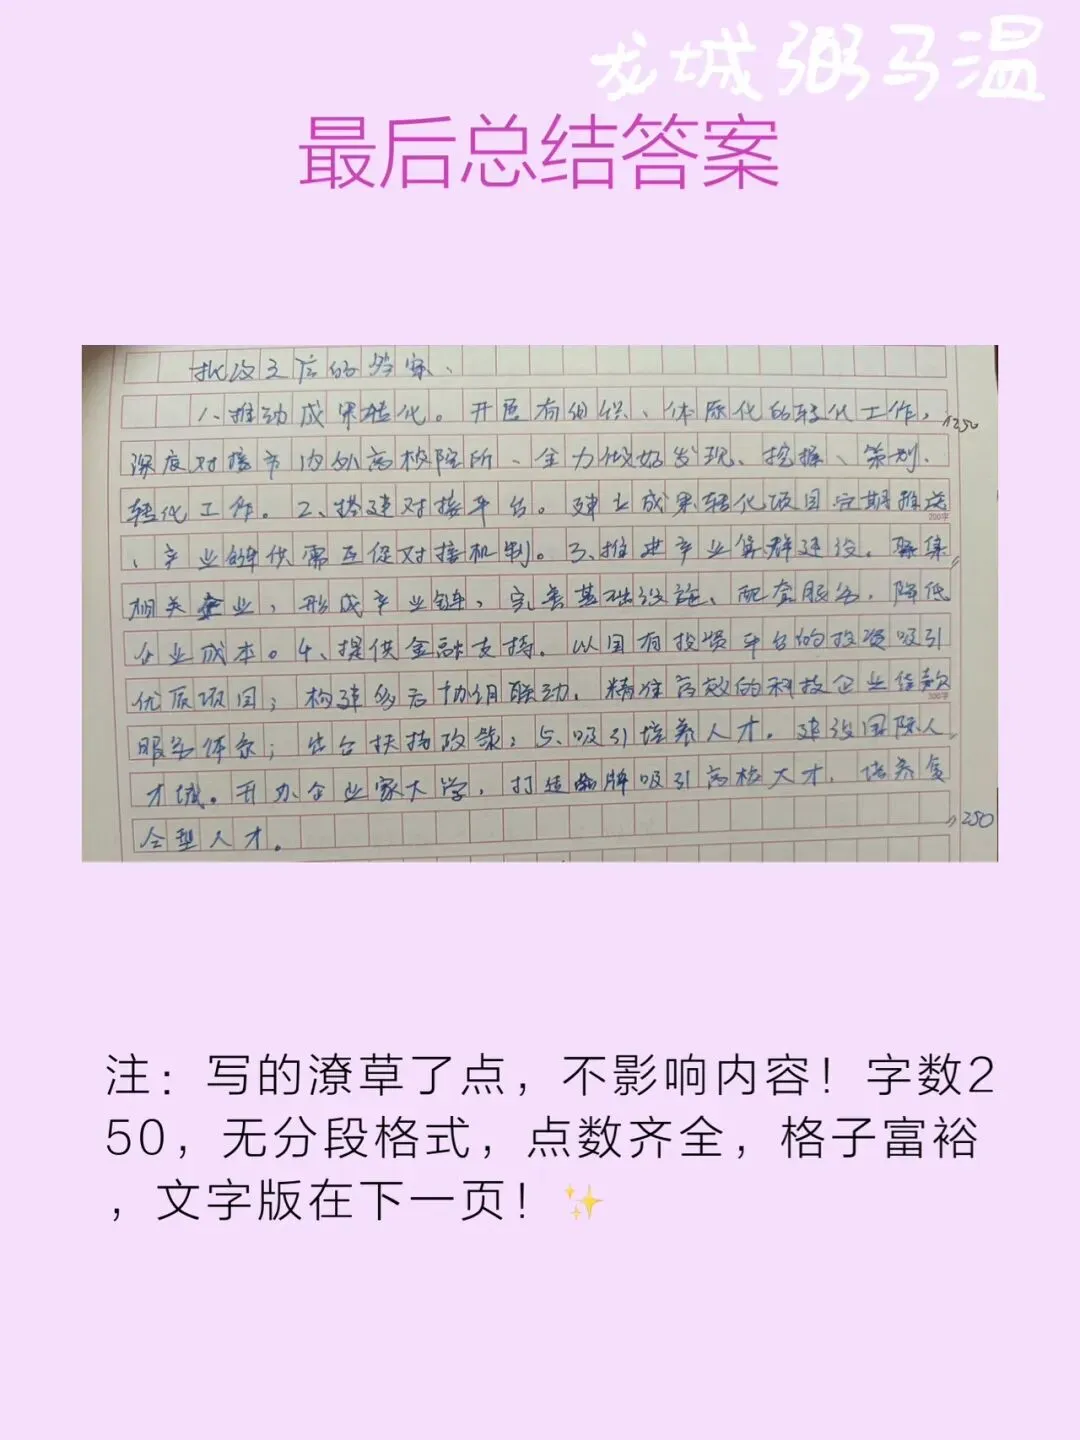 龙城弼马温
最后总结答案
批改之后的答案、
1、推动成果转化。开展有组织、体系化的转化工作，
1250
深度对接市内外高校院所、全力做好发现、挖掘、策划、
转化工作。2、搭建对接平台。建立成果转化项目定期推送
200字
、产业链供需互促对接机制。3、推进产业集群建设。聚集
相关企业，形成产业链，完善基础设施、配套服务，降低
企业成本。4、提供金融支持。以国有投资平台的投资吸引
优质项目；构建多方协同联动、精准高效的科技企业贷款
300字
服务体系；出台扶持政策；5、吸引培养人才。建设国际人
才城。开办企业家大学，打造品牌吸引高校大才，培养复
合型人才。
250
注：写的潦草了点，不影响内容！字数2
50，无分段格式，点数齐全，格子富裕
，文字版在下一页！✨